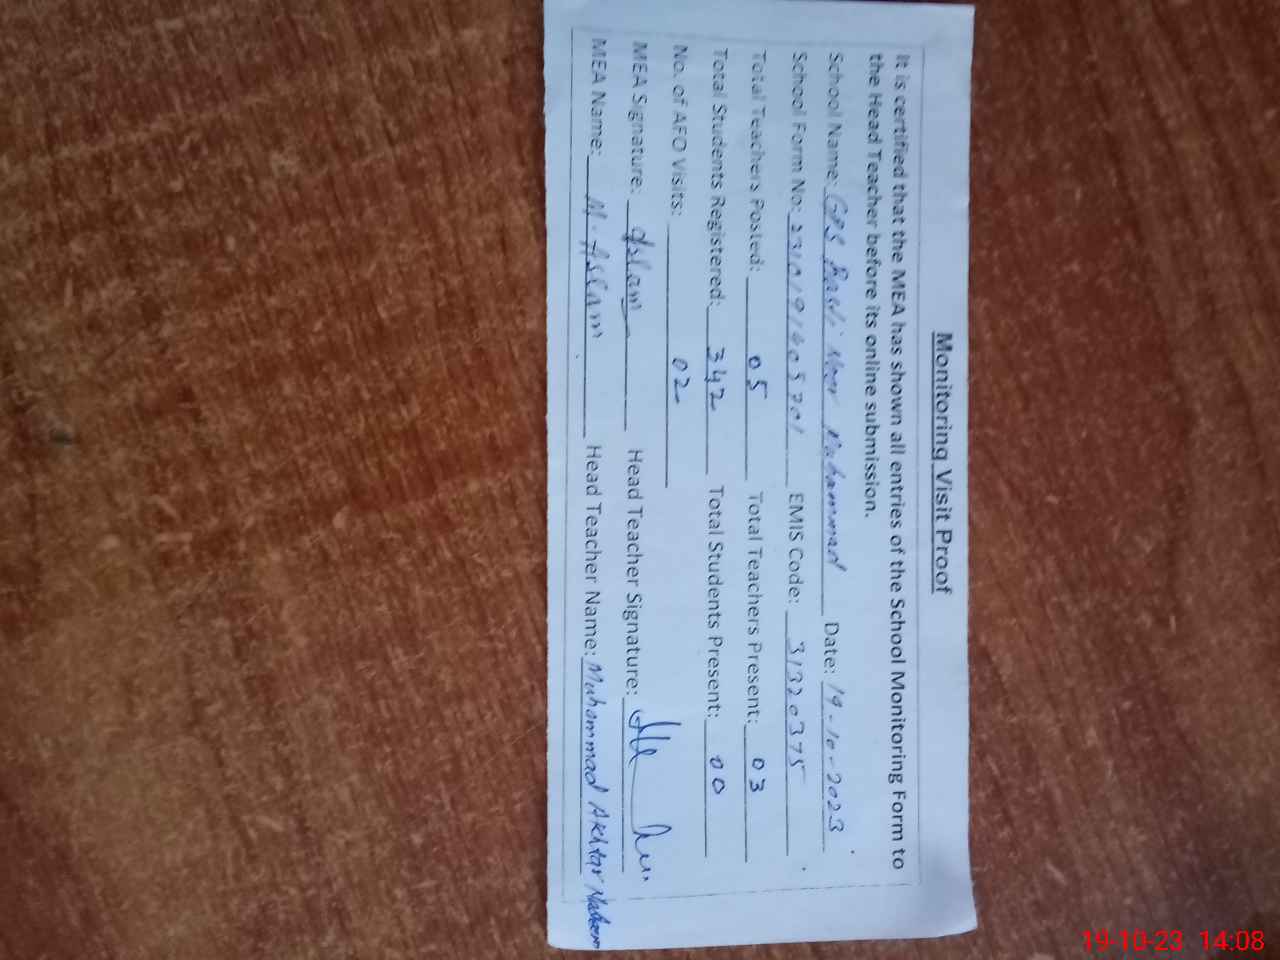 Monitoring Visit Proof
It is certified that the MEA has shown all entries of the School Monitoring Form to
the Head Teacher before its online submission.
School Name: GPS Noor Muhammad Date: 19-10-2023
School Form No: EMIS Code: 31320375
Total Teachers Posted: 05 Total Teachers Present: 03
Total Students Registered: 342 Total Students Present: 00
No. of AFO Visits: 02
MEA Signature: Aslam Head Teacher Signature:
MEA Name: M. Aslam Head Teacher Name: Muhammad Akhtar Nadeem
19-10-23 14:08